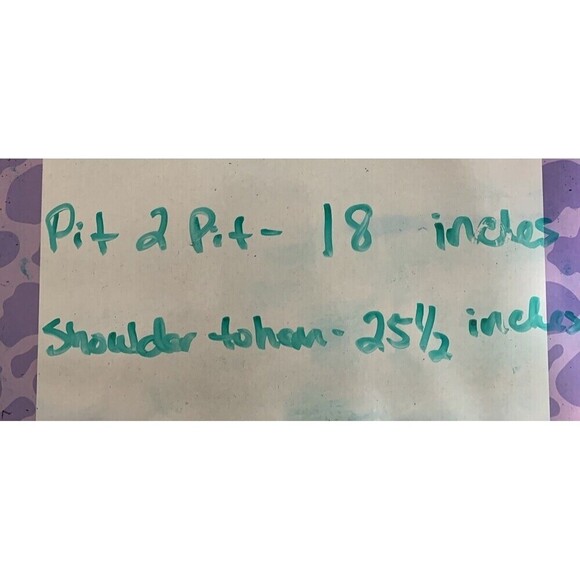 Pit 2 Pit- 18 inches
Shoulder to hem- 25 1/2 inches